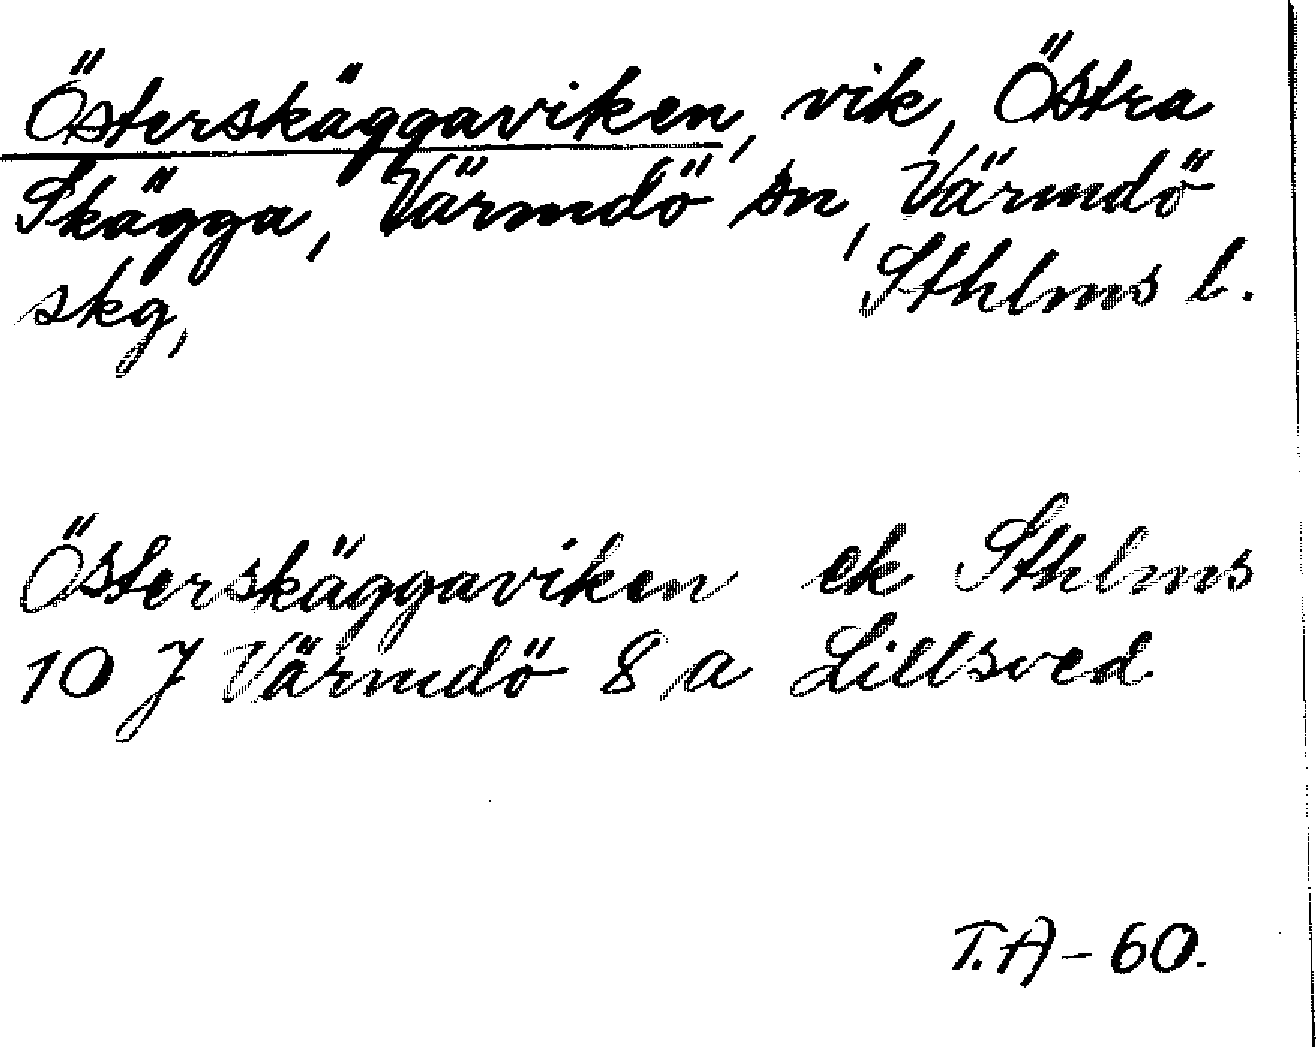 Österskäggaviken, vik, Östra
Skägga, Värmdö sn, Värmdö
skg, Sthlms l.
Österskäggaviken ek Sthlms
10 J Värmdö 8 a Lillsved
T.A-60.